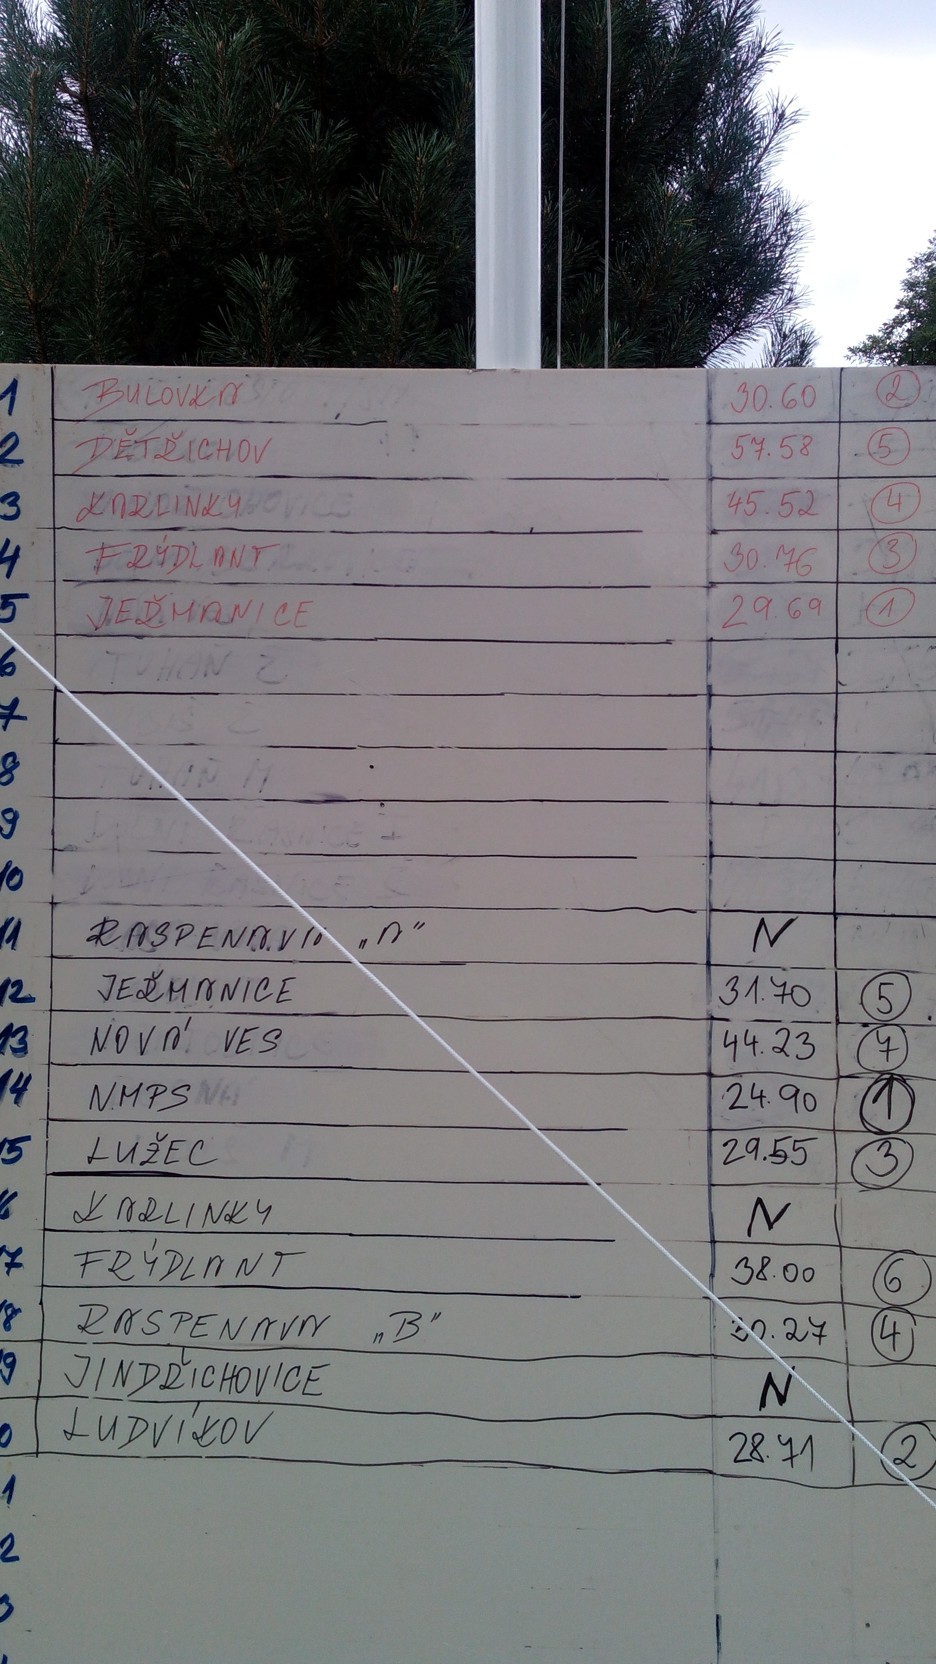 1 BULOVKA 30.60 2
2 DĚTŘICHOV 57.58 5
3 KARLINKY 45.52 4
4 FRÝDLANT 30.76 3
5 JEŘMANICE 29.69 1
6
7
8
9
10
11 RASPENAVA „A" N
12 JEŘMANICE 31.70 5
13 NOVÁ VES 44.23 7
14 NMPS 24.90 1
15 LUŽEC 29.55 3
6 KARLINKY N
7 FRÝDLANT 38.00 6
8 RASPENAVA „B" 30.27 4
9 JINDŘICHOVICE N
0 LUDVÍKOV 28.71 2
1
2
3